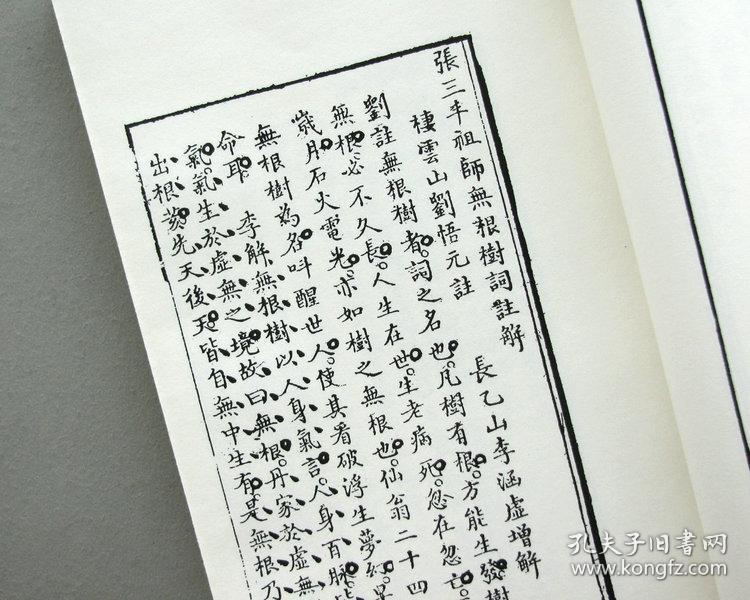 張三丰祖師無根樹詞註解
棲雲山劉悟元註 長乙山李涵虛增解
劉註無根樹者。詞之名也。凡樹有根。方能生發。樹
無根。必不久長。人生在世。生老病死。忽在忽亡。
歲月。石火電光。亦如樹之無根也。仙翁二十四
無根樹為名。叫醒世人。使其看破浮生夢幻。
命耶。 李解無根樹。以人身氣言。人身百脈。皆
氣。氣生於虛無之境。故曰無根。丹家於虛無
出根。蓋先天後天。皆自無中生有。是無根乃
孔夫子旧书网
www.kongfz.com